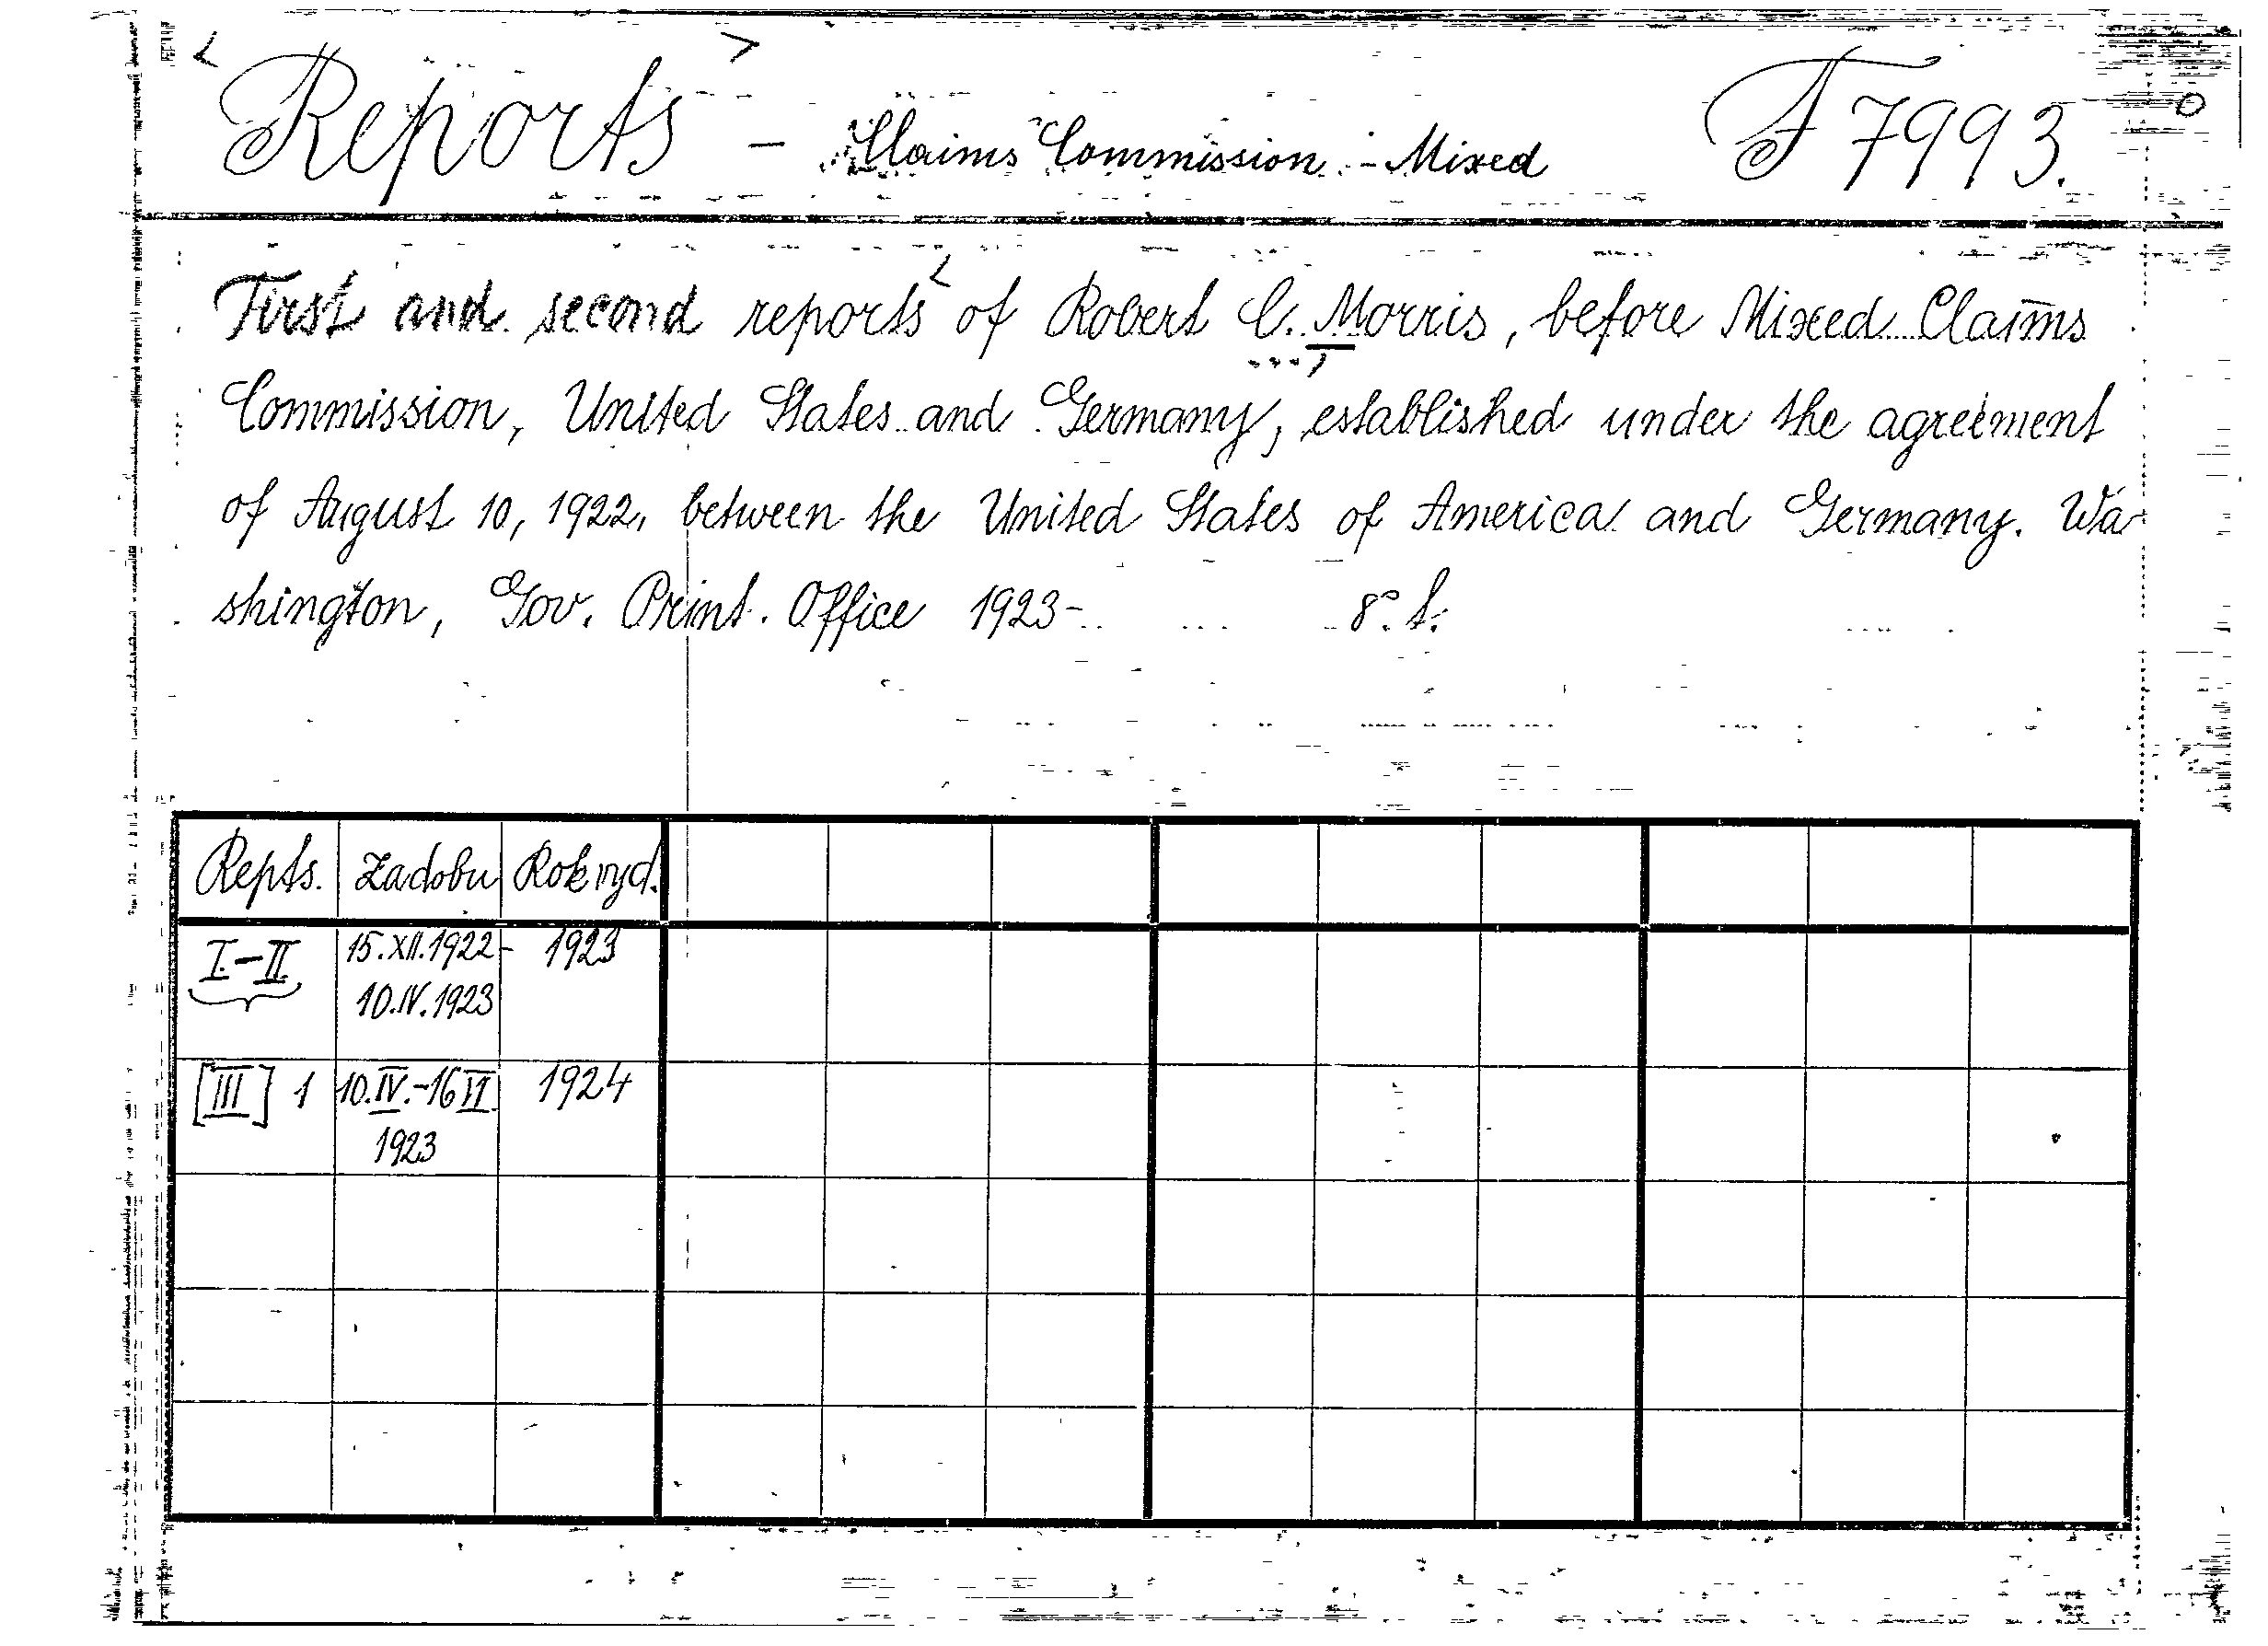 < Reports > - Claims Commission - Mixed F 7993.
First and second reports of Robert C. Morris, before Mixed Claims
Commission, United States and Germany, established under the agreement
of August 10, 1922, between the United States of America and Germany. Wa-
shington, Gov. Print. Office 1923- 8° t.
Repts. Za dobu Rok vyd.
I.-II 15.XII.1922- 1923
10.IV.1923
[III] 1 10.IV.-16 VI 1924
1923